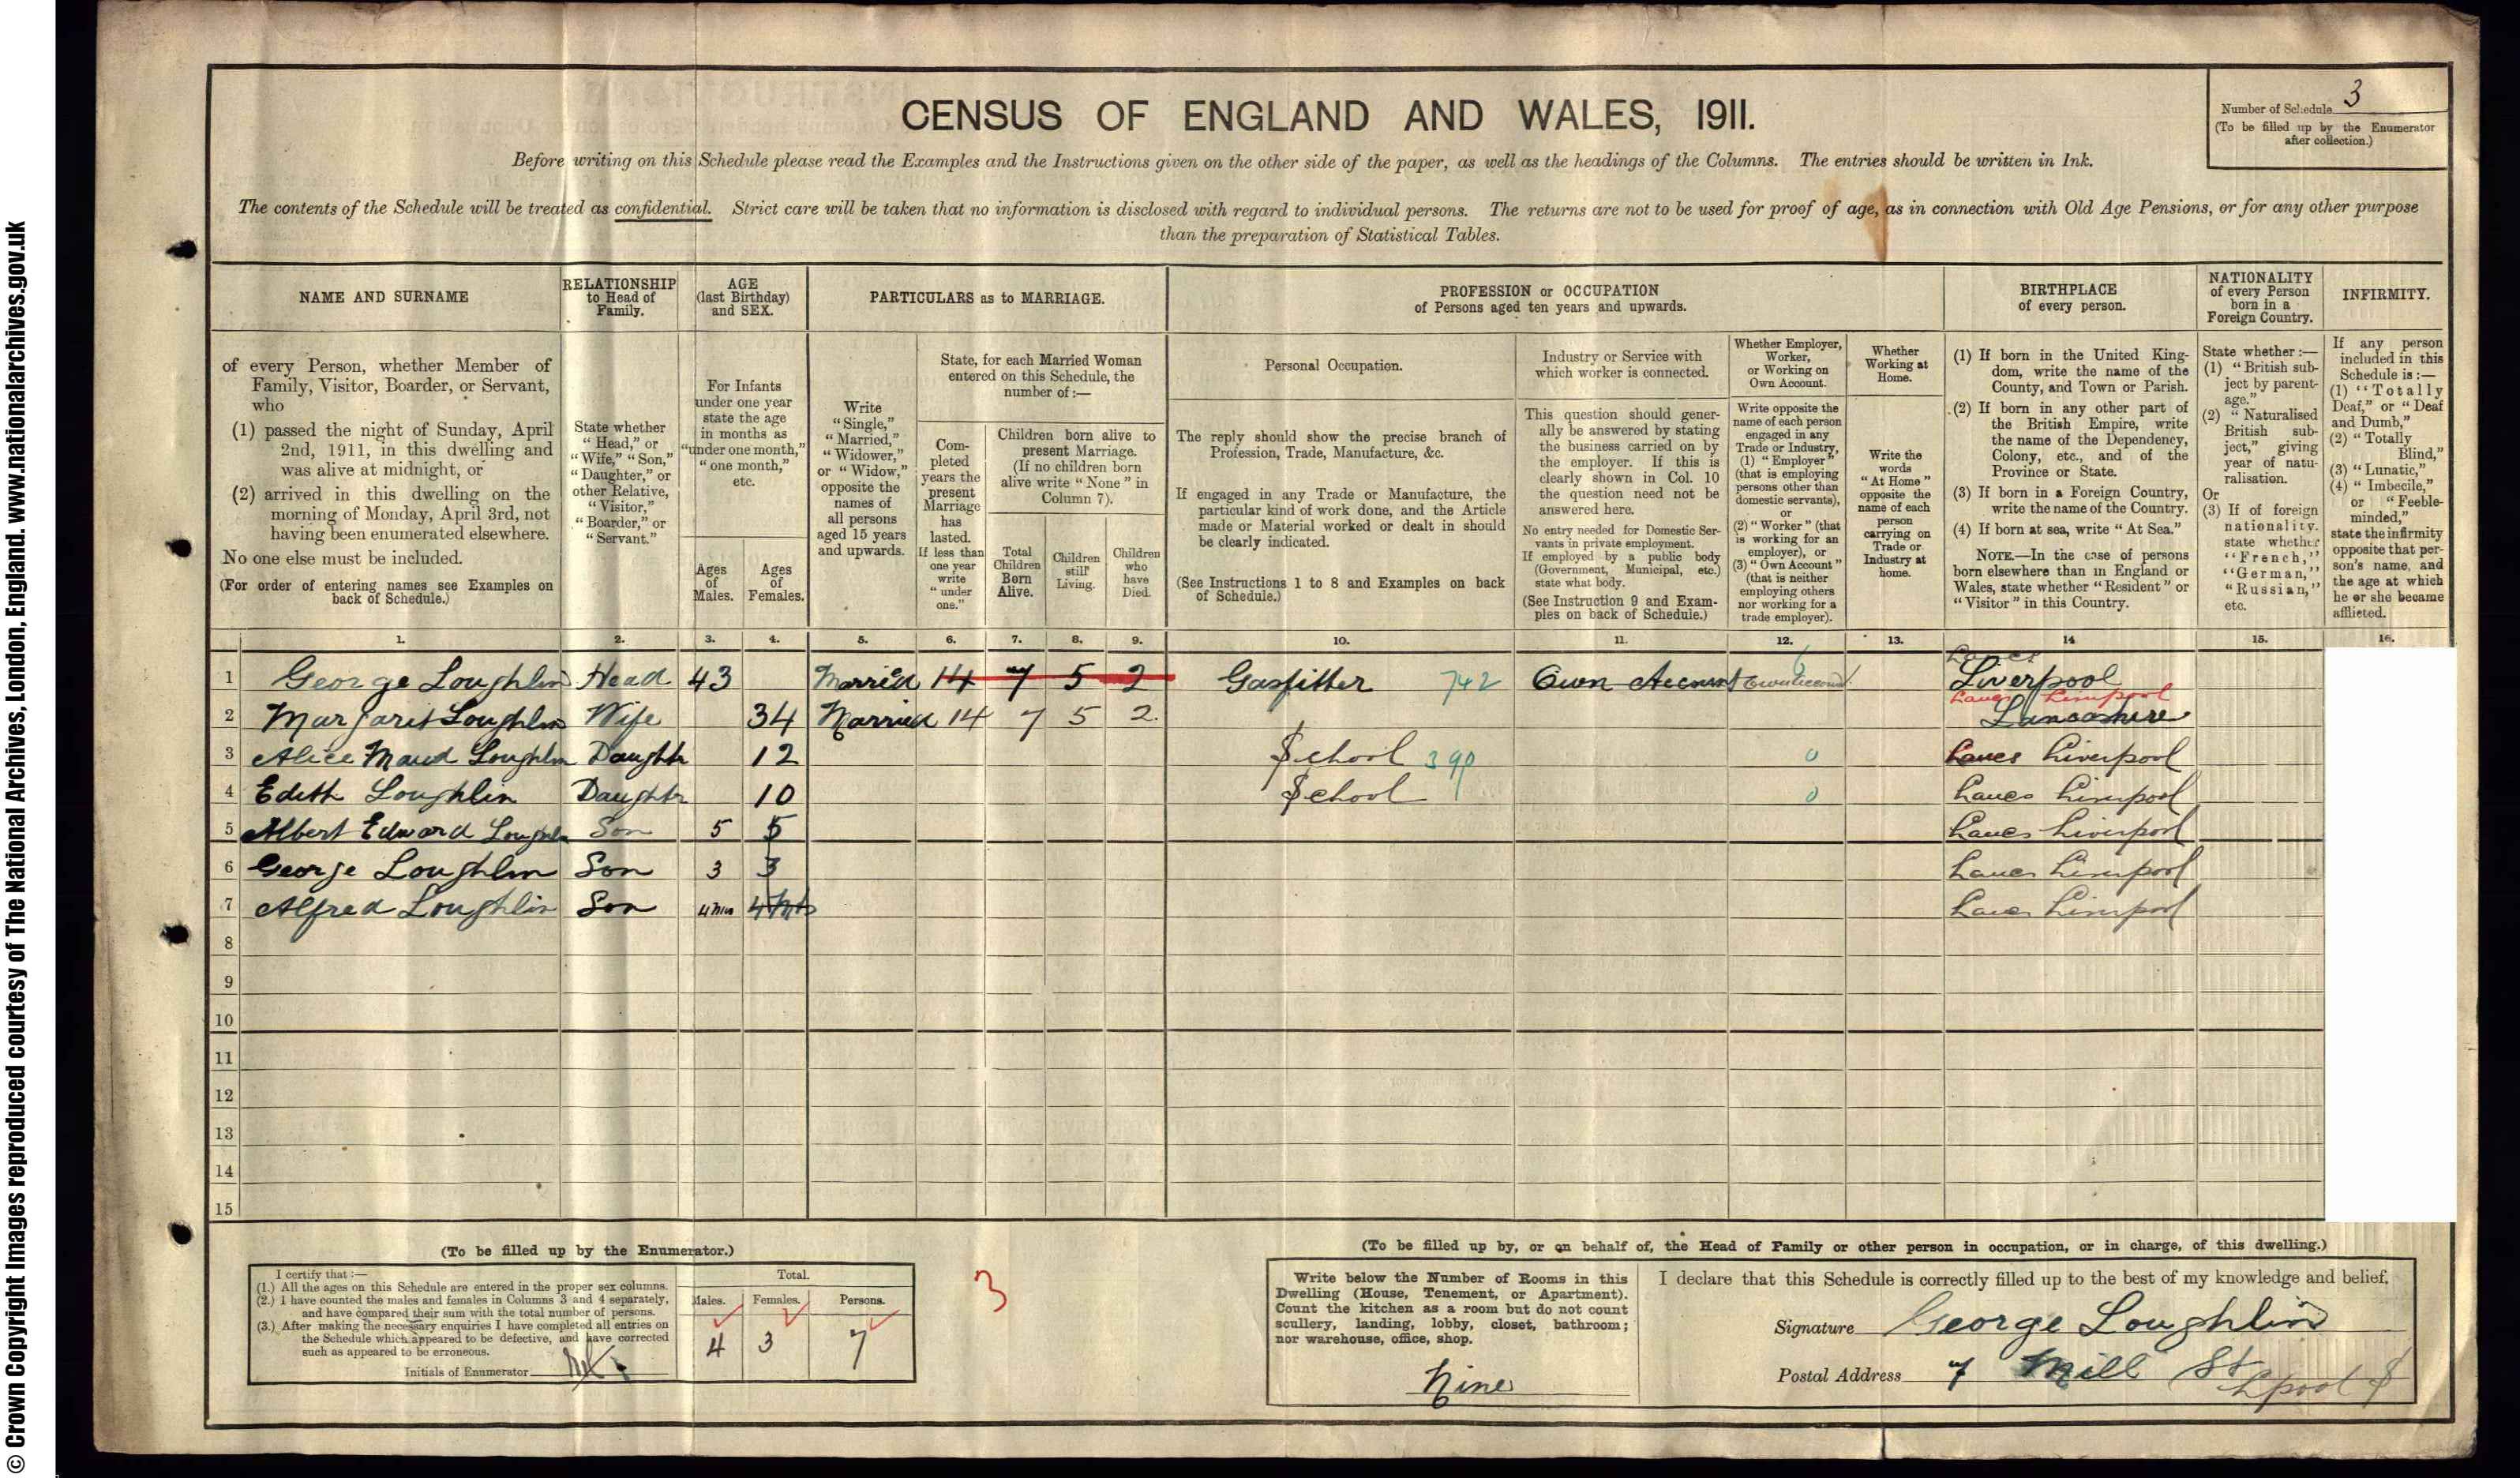 © Crown Copyright Images reproduced courtesy of The National Archives, London, England. www.nationalarchives.gov.uk
CENSUS OF ENGLAND AND WALES, 1911.
Number of Schedule 3
(To be filled up by the Enumerator
after collection.)
Before writing on this Schedule please read the Examples and the Instructions given on the other side of the paper, as well as the headings of the Columns. The entries should be written in Ink.
The contents of the Schedule will be treated as confidential. Strict care will be taken that no information is disclosed with regard to individual persons. The returns are not to be used for proof of age, as in connection with Old Age Pensions, or for any other purpose
than the preparation of Statistical Tables.
NAME AND SURNAME
of every Person, whether Member of
Family, Visitor, Boarder, or Servant,
who
(1) passed the night of Sunday, April
2nd, 1911, in this dwelling and
was alive at midnight, or
(2) arrived in this dwelling on the
morning of Monday, April 3rd, not
having been enumerated elsewhere.
No one else must be included.
(For order of entering names see Examples on
back of Schedule.)
RELATIONSHIP
to Head of
Family.
State whether
"Head," or
"Wife," "Son,"
"Daughter," or
other Relative,
"Visitor,"
"Boarder," or
"Servant."
AGE
(last Birthday)
and SEX.
For Infants
under one year
state the age
in months as
"under one month,"
"one month,"
etc.
Ages
of
Males.
Ages
of
Females.
PARTICULARS as to MARRIAGE.
Write
"Single,"
"Married,"
"Widower,"
or "Widow,"
opposite the
names of
all persons
aged 15 years
and upwards.
State, for each Married Woman
entered on this Schedule, the
number of:—
Com-
pleted
years the
present
Marriage
has
lasted.
If less than
one year
write
"under
one."
Children born alive to
present Marriage.
(If no children born
alive write "None" in
Column 7).
Total
Children
Born
Alive.
Children
still
Living.
Children
who
have
Died.
PROFESSION or OCCUPATION
of Persons aged ten years and upwards.
Personal Occupation.
The reply should show the precise branch of
Profession, Trade, Manufacture, &c.
If engaged in any Trade or Manufacture, the
particular kind of work done, and the Article
made or Material worked or dealt in should
be clearly indicated.
(See Instructions 1 to 8 and Examples on back
of Schedule.)
Industry or Service with
which worker is connected.
This question should gener-
ally be answered by stating
the business carried on by
the employer. If this is
clearly shown in Col. 10
the question need not be
answered here.
No entry needed for Domestic Ser-
vants in private employment.
If employed by a public body
(Government, Municipal, etc.)
state what body.
(See Instruction 9 and Exam-
ples on back of Schedule.)
Whether Employer,
Worker,
or Working on
Own Account.
Write opposite the
name of each person
engaged in any
Trade or Industry,
(1) "Employer"
(that is employing
persons other than
domestic servants),
or
(2) "Worker" (that
is working for an
employer), or
(3) "Own Account"
(that is neither
employing others
nor working for a
trade employer).
Whether
Working at
Home.
Write the
words
"At Home"
opposite the
name of each
person
carrying on
Trade or
Industry at
home.
BIRTHPLACE
of every person.
(1) If born in the United King-
dom, write the name of the
County, and Town or Parish.
(2) If born in any other part of
the British Empire, write
the name of the Dependency,
Colony, etc., and of the
Province or State.
(3) If born in a Foreign Country,
write the name of the Country.
(4) If born at sea, write "At Sea."
NOTE.—In the case of persons
born elsewhere than in England or
Wales, state whether "Resident" or
"Visitor" in this Country.
NATIONALITY
of every Person
born in a
Foreign Country.
State whether:—
(1) "British sub-
ject by parent-
age."
(2) "Naturalised
British sub-
ject," giving
year of natu-
ralisation.
Or
(3) If of foreign
nationality,
state whether
"French,"
"German,"
"Russian,"
etc.
INFIRMITY.
If any person
included in this
Schedule is:—
(1) "Totally
Deaf," or "Deaf
and Dumb,"
(2) "Totally
Blind,"
(3) "Lunatic,"
(4) "Imbecile,"
or "Feeble-
minded,"
state the infirmity
opposite that per-
son's name, and
the age at which
he or she became
afflicted.
1. 2. 3. 4. 5. 6. 7. 8. 9. 10. 11. 12. 13. 14 15. 16.
Lancs 6
1 George Loughlin Head 43 Married 14 7 5 2 Gasfitter 742 Own Account Own Account Liverpool
Lancs Liverpool
2 Margaret Loughlin Wife 34 Married 14 7 5 2. Lancashire
3 Alice Maud Loughlin Daughtr 12 School 390 0 Lancs Liverpool
4 Edith Loughlin Daughtr 10 School 0 Lancs Liverpool
5 Albert Edward Loughlin Son 5 5 Lancs Liverpool
6 George Loughlin Son 3 3 Lancs Liverpool
7 Alfred Loughlin Son 4 mts 4 Mts Lancs Liverpool
8
9
10
11
12
13
14
15
(To be filled up by the Enumerator.)
I certify that:—
(1.) All the ages on this Schedule are entered in the proper sex columns.
(2.) I have counted the males and females in Columns 3 and 4 separately,
and have compared their sum with the total number of persons.
(3.) After making the necessary enquiries I have completed all entries on
the Schedule which appeared to be defective, and have corrected
such as appeared to be erroneous.
Initials of Enumerator
Total.
Males. Females. Persons.
4 3 7
3
(To be filled up by, or on behalf of, the Head of Family or other person in occupation, or in charge, of this dwelling.)
Write below the Number of Rooms in this
Dwelling (House, Tenement, or Apartment).
Count the kitchen as a room but do not count
scullery, landing, lobby, closet, bathroom;
nor warehouse, office, shop.
Nine
I declare that this Schedule is correctly filled up to the best of my knowledge and belief.
Signature George Loughlin
Postal Address 7 Mill St
Lpool S